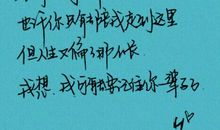 也许你只能陪我走到这里
但人生又偏了那么长
我想，我可能要记住你一辈子了